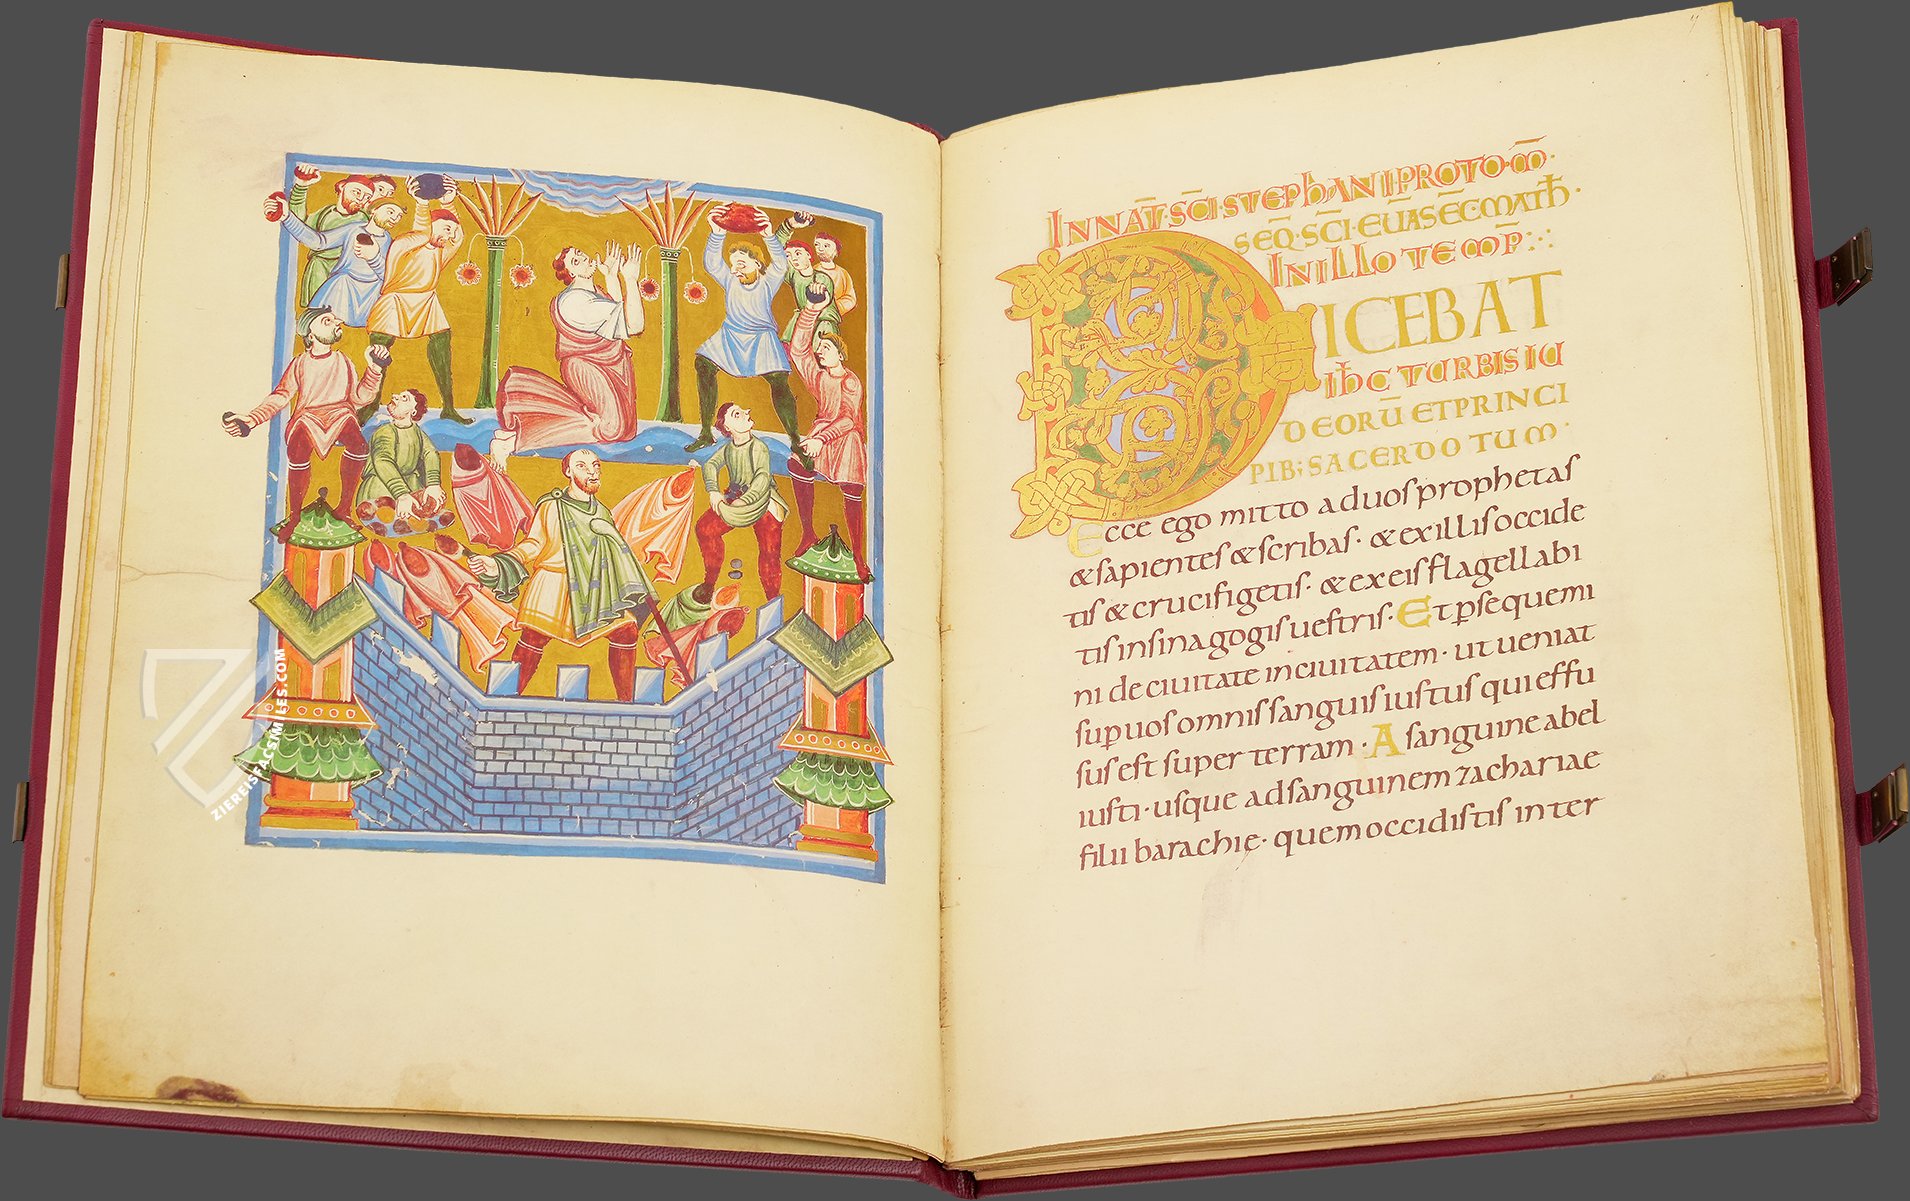 ZIEREISFACSIMILES.COM
INNAT̄·SC̄I·STEPHANIPROTO·M̄·
SEQ̄·SC̄I·EŪASEC̄MATꞪ·
INILLO TEMP̄
DICEBAT
IħC TURBIS IU
DEORŪ ETPRINCI
PIB;SACERDOTUM·
Ecce ego mitto aduos prophetas
& sapientes & scribas· & exillis occide
tis & crucifigetis· & exeis flagellabi
tis insinagogis uestris· Et p̱sequemi
ni deciuitate inciuitatem· ut ueniat
sup̱ uos omnis sanguis iustus qui effu
sus est super terram· A sanguine abel
iusti· usque adsanguinem zachariae
filii barachie· quem occidistis inter